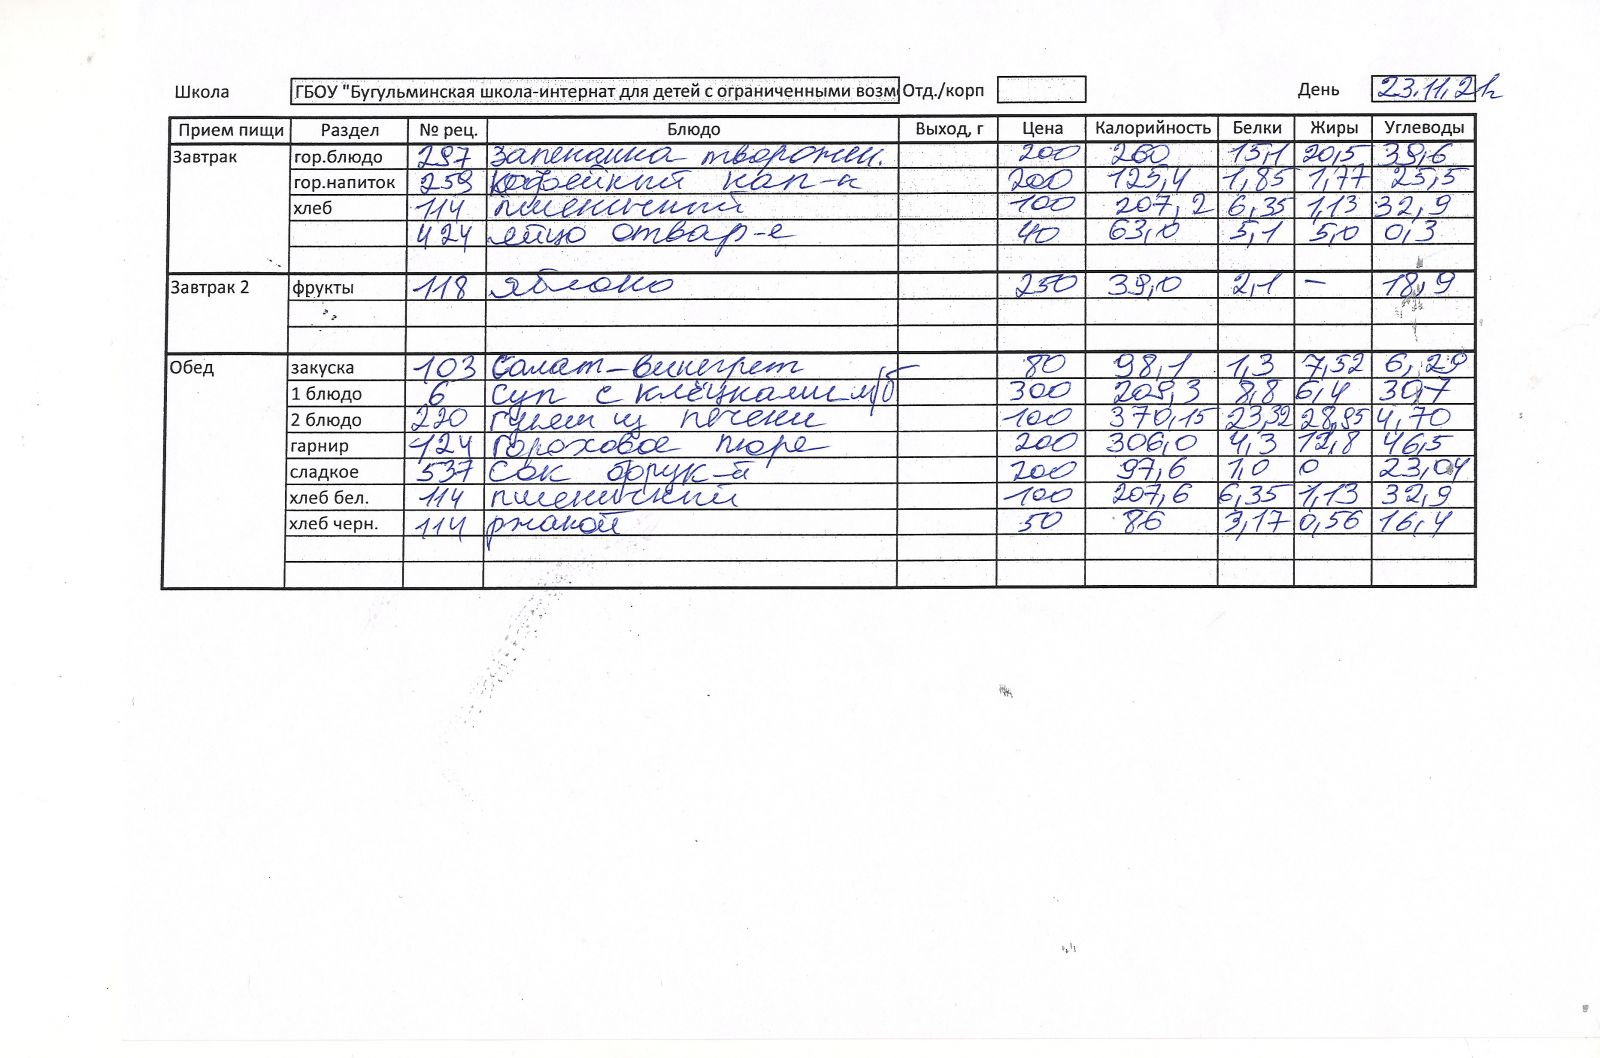 Школа ГБОУ "Бугульминская школа-интернат для детей с ограниченными возм Отд./корп День 23.11.21г
Прием пищи Раздел № рец. Блюдо Выход, г Цена Калорийность Белки Жиры Углеводы
Завтрак гор.блюдо 297 Запеканка творожен. 200 260 15,1 20,5 39,6
гор.напиток 259 Кофейный нап-к 200 125,4 1,85 1,77 25,5
хлеб 114 пшеничный 100 207,2 6,35 1,13 32,9
424 яйцо отвар-е 40 63,0 5,1 5,0 0,3
Завтрак 2 фрукты 118 Яблоко 250 39,0 2,1 – 18,9
Обед закуска 103 Салат-винегрет 80 98,1 1,3 7,52 6,29
1 блюдо 6 Суп с клёцками м/б 300 209,3 8,8 6,4 30,7
2 блюдо 220 Гуляш из печени 100 370,15 23,32 28,95 4,70
гарнир 124 Гороховое пюре 200 306,0 4,3 12,8 46,5
сладкое 537 Сок фрук-й 200 97,6 1,0 0 23,04
хлеб бел. 114 пшеничный 100 207,6 6,35 1,13 32,9
хлеб черн. 114 ржаной 50 86 3,17 0,56 16,4